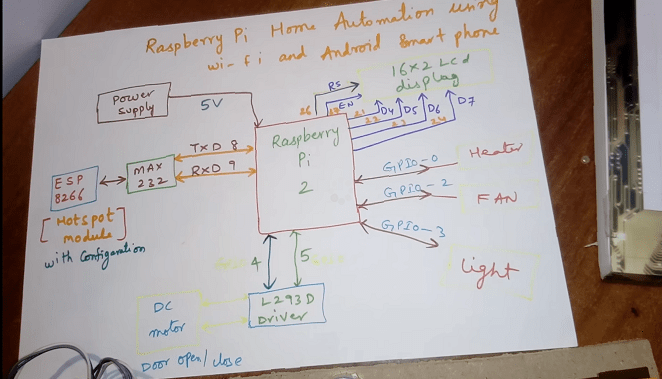 Raspberry Pi Home Automation using
wi-fi and Android Smart phone
16x2 Lcd
display
Power
supply
5V
RS
EN
D4
D5
D6
D7
26
21
22
23
24
Raspberry
Pi
2
TXD 8
RXD 9
MAX
232
ESP
8266
[Hotspot
module]
with Configuration
GPIO-0
Heater
GPIO-2
FAN
GPIO-3
Light
4
5
L293D
Driver
DC
motor
Door open/close